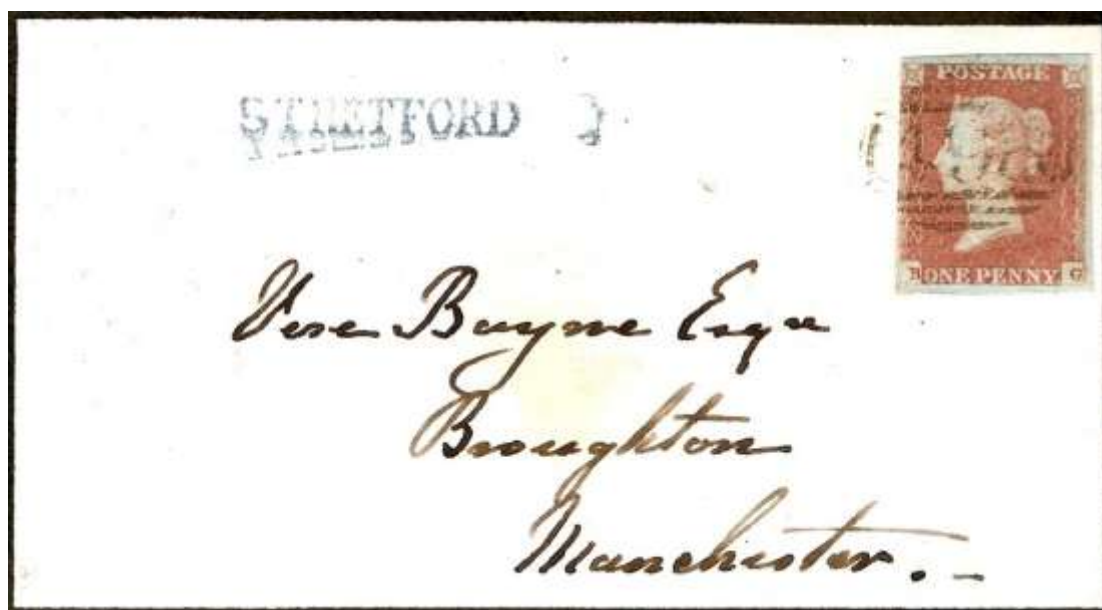 STRETFORD
POSTAGE
ONE PENNY G
Vere Bayne Esqre
Broughton
Manchester.-